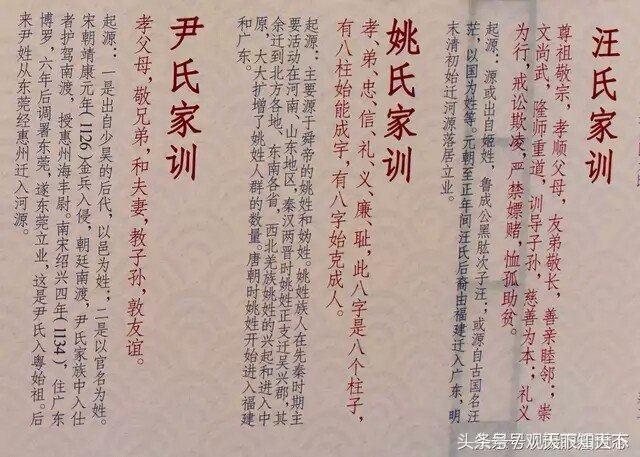 汪氏家训
尊祖敬宗，孝顺父母，友弟敬长，善亲睦邻；崇
文尚武，隆师重道，训导子孙，慈善为本；礼义
为行，戒讼欺凌，严禁嫖赌，恤孤助贫。
起源：源或出自姬姓，鲁成公黑肱次子汪；或源自古国名汪
茫，以国为姓等。元朝至正年间汪氏后裔由福建迁入广东，明
末清初始迁河源落居立业。
姚氏家训
孝、弟、忠、信、礼、义、廉、耻，此八字是八个柱子，
有八柱始能成宇，有八字始克成人。
起源：主要源于舜帝的姚姓和妫姓。姚姓族人在先秦时期主
要活动在河南、山东地区，秦汉两晋时姚姓正支迁吴兴郡，其
余迁到北方各地、东南各省，西北羌族姚姓的兴起和进入中
原，大大扩增了姚姓人群的数量。唐朝时姚姓开始进入福建
和广东。
尹氏家训
孝父母，敬兄弟，和夫妻，教子孙，敦友谊。
起源：一是出自少昊的后代，以邑为姓；二是以官名为姓。
宋朝靖康元年(1126)金兵入侵，朝廷南渡，尹氏家族中入仕
者护驾南渡，授惠州海丰尉。南宋绍兴四年(1134)，住广东
博罗，六年后调署东莞，遂东莞立业，这是尹氏入粤始祖。后
来尹姓从东莞经惠州迁入河源。